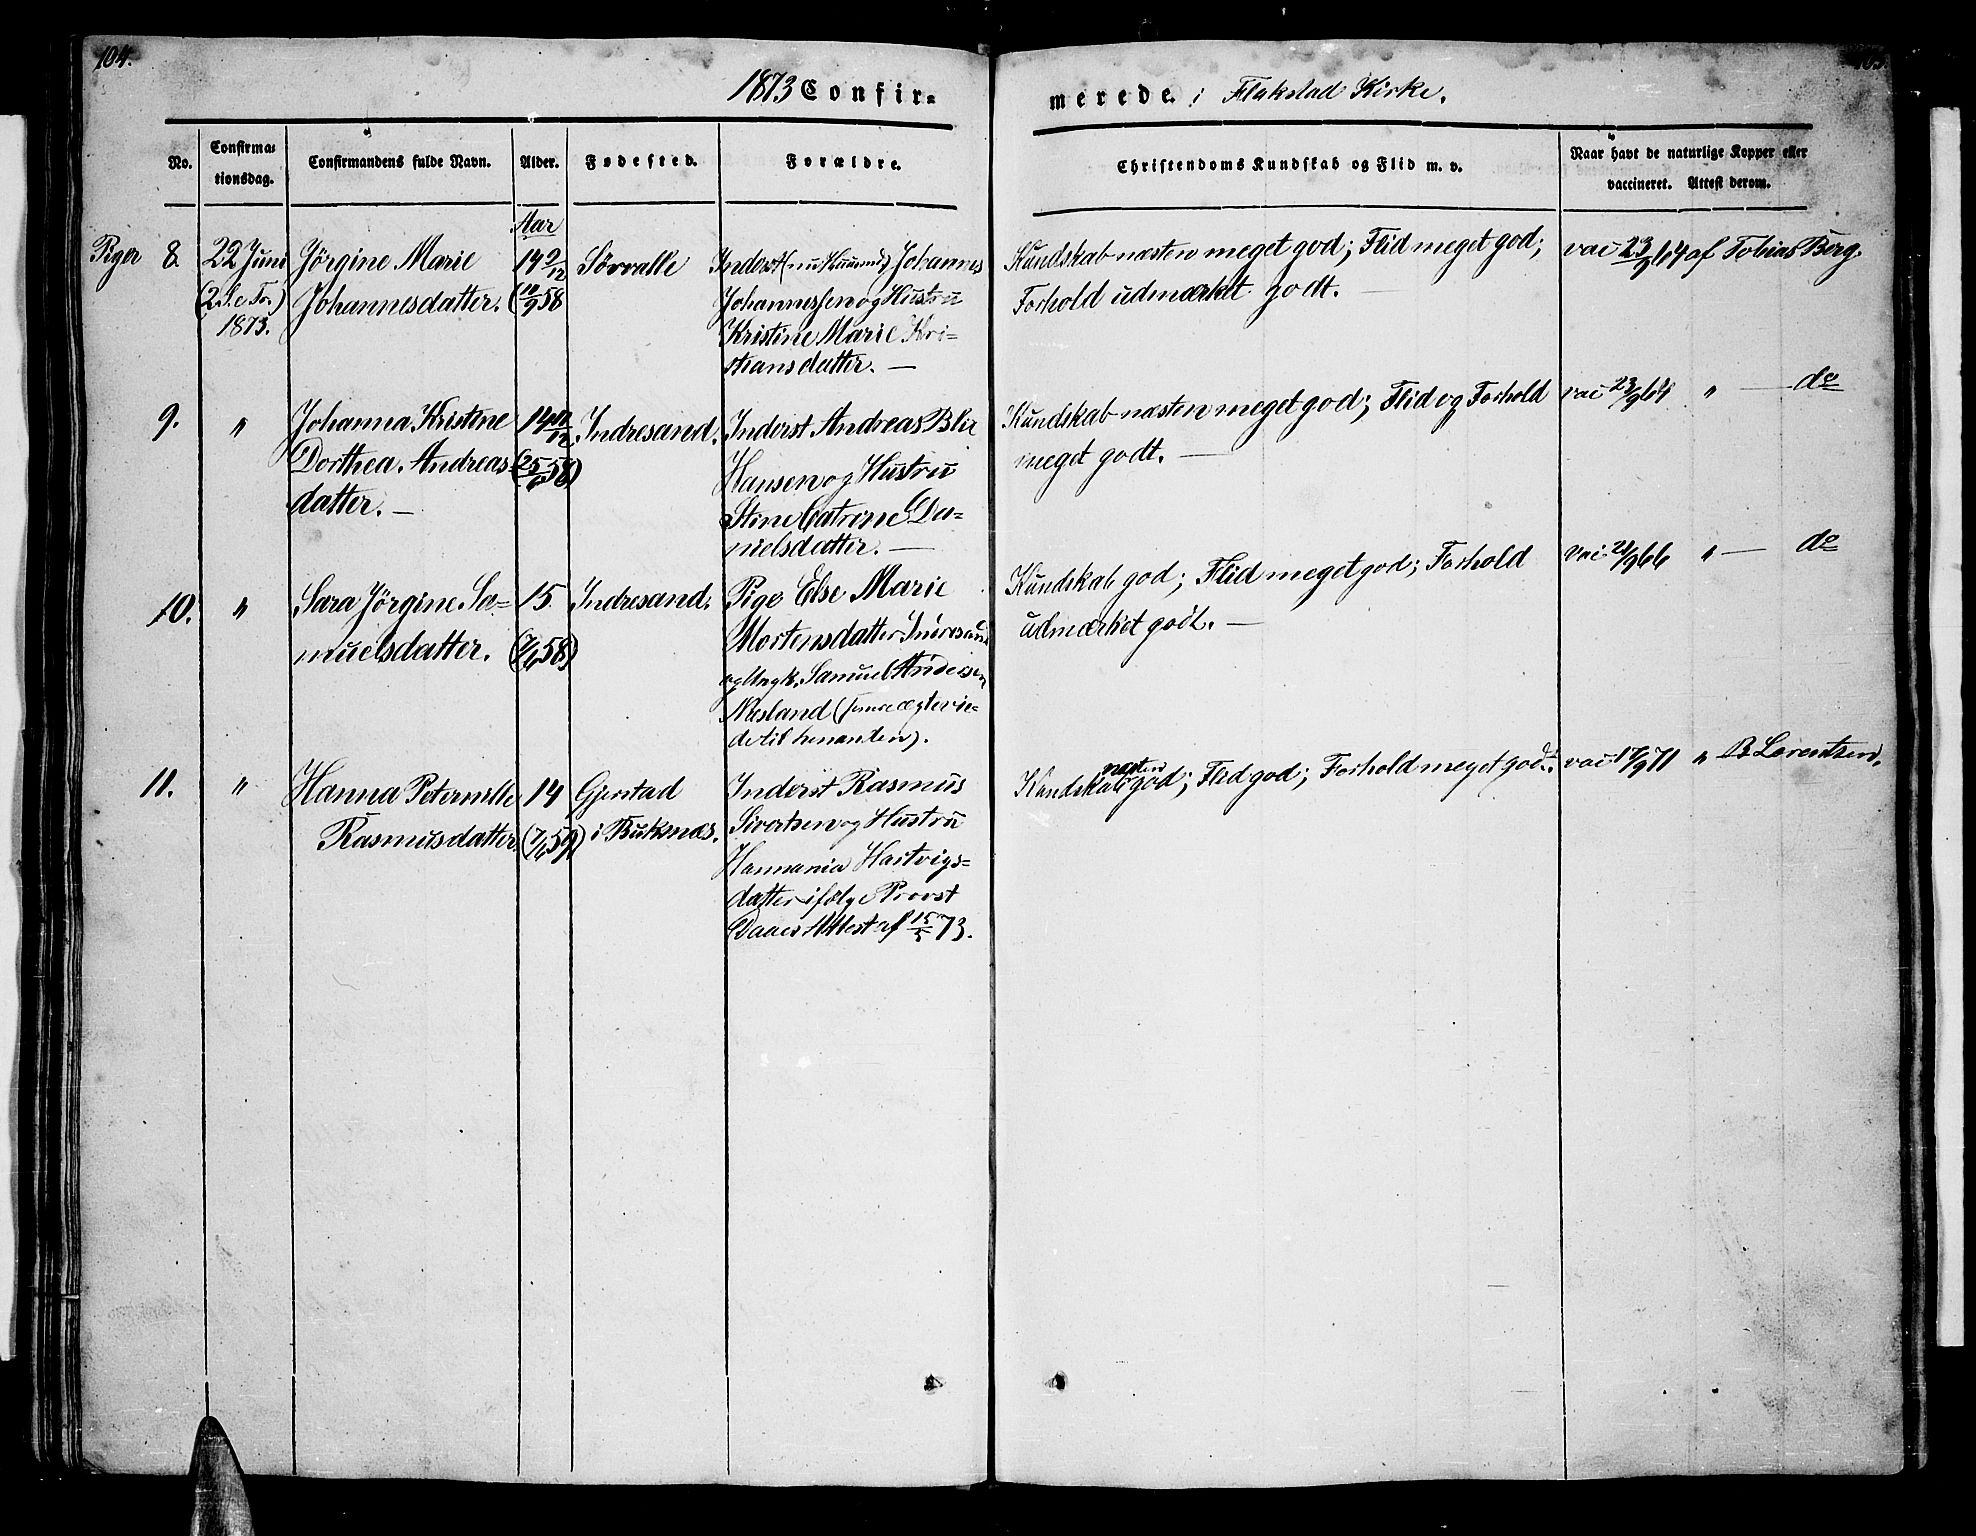 104.
1873 Confir-
merede. i Flakstad Kirke.
No.
Confirma-
tionsdag.
Confirmandens fulde Navn.
Alder.
Fødested.
Forældre.
Christendoms Kundskab og Flid m. v.
Naar havt de naturlige Kopper eller
vaccineret. Attest derom.
Aar
Piger 8.
22 Juni
(2 S. e. Tr.)
1873.
Jørgine Marie
Johannesdatter.
14 9/12
(10/9 58
Sørvalle
Inderst (nu Huusmd) Johannes
Johannessen og Hustru
Kristine Marie Kri-
stiansdatter. —
Kundskab næsten meget god; Flid meget god;
Forhold udmærket godt. —
vac 23/9 64 af Tobias Berg.
9.
"
Johanna Kristine
Dorthea Andreas-
datter. —
14
(25/6 58)
Indresand.
Inderst Andreas Blix
Hansen og Hustru
Stine Catrine Da-
nielsdatter. —
Kundskab næsten meget god; Flid og Forhold
meget godt. —
vac 23/9 64 " — do
10.
"
Sara Jørgine Sa-
muelsdatter.
15.
(7/6 58)
Indresand.
Pige Else Marie
Mortensdatter Indresand
og Ungk. Samuel Andersen
Næsland (senere ægtevie-
de til hinanden).
Kundskab god; Flid meget god; Forhold
udmærket godt. —
vac 21/9 66 " — do
11.
"
Hanna Peternille
Rasmusdatter.
14
(7/6 59)
Gjerstad
i Buksnæs.
Inderst Rasmus
Sivertsen og Hustru
Hannania Hartvigs-
datter ifølge Provst
Daaes Attest af 15/5 73.
næsten
Kundskab god; Flid god; Forhold meget godt.
vac 17/9 71 " B Lorentsen.